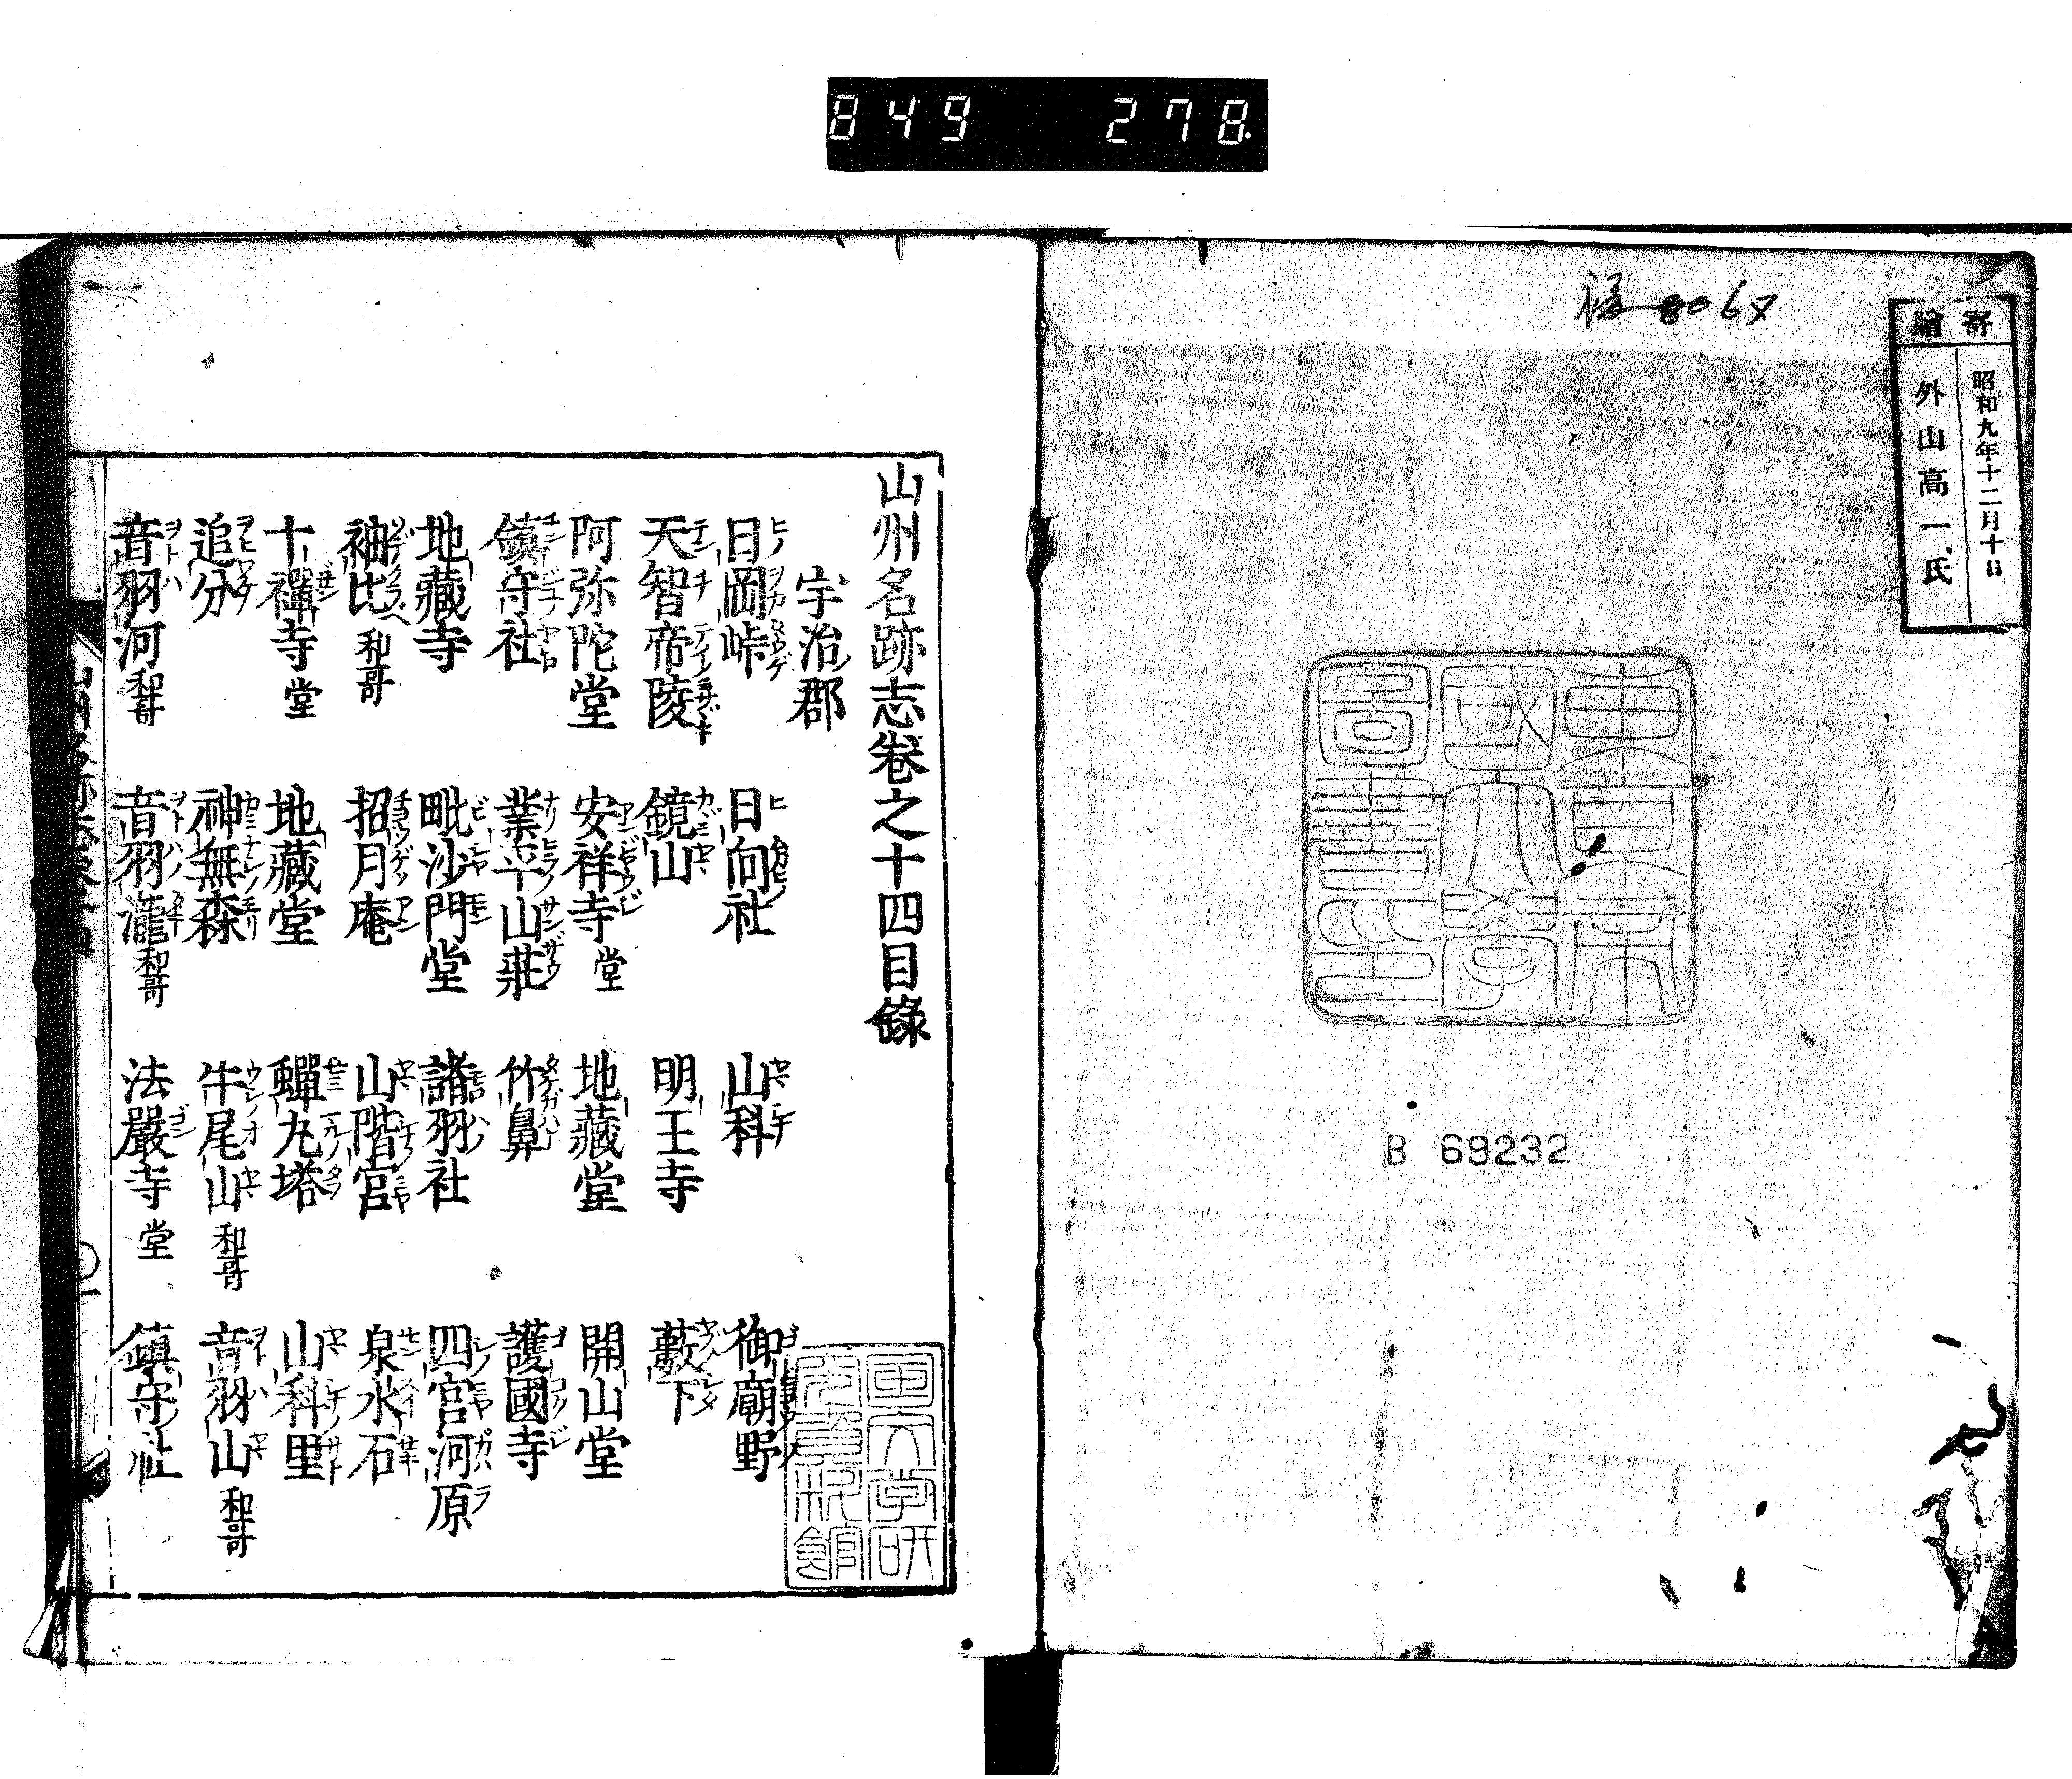 849 278
寄贈
昭和九年十二月十日
外山高一氏
東京帝國大學圖書之印
B 69232
山州名跡志卷之十四目錄
宇治郡
日岡峠 日向社 山科 御廟野
天智帝陵 鏡山 明王寺 藪下
阿弥陀堂 安祥寺堂 地藏堂 開山堂
鎮守社 業平山莊 竹鼻 護國寺
地藏寺 毗沙門堂 諸羽社 四宮河原
袖比和哥 招月庵 山階宮 泉水石
十禪寺堂 地藏堂 蟬丸塔 山科里
追分 神無森 牛尾山和哥 音羽山和哥
音羽河和哥 音羽瀧和哥 法嚴寺堂 鎮守社